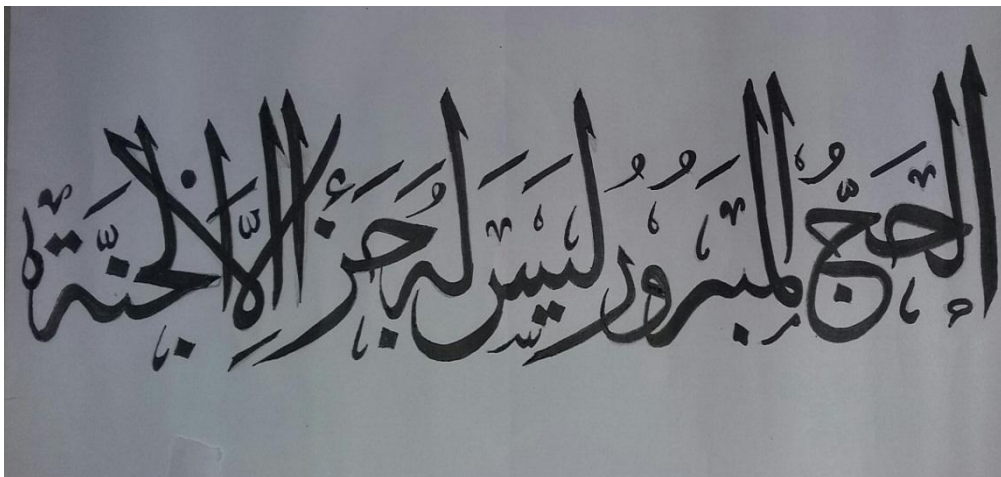 إلحَجُّ المَبرُورُ لَيسَ لَهُ جَزَاءٌ إلاَّ الجَنَّةُ